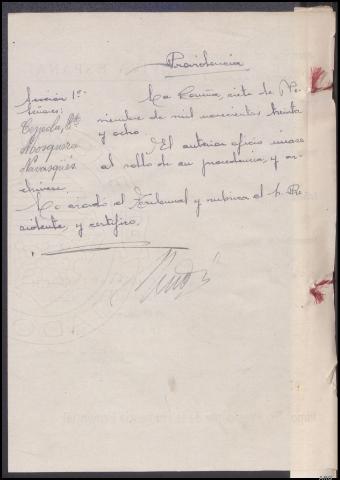 Providencia
Sección 1ª
Señores:
Tejada, Pte
Mosquera
Navasqües
La Coruña, siete de No-
viembre de mil novecientos treinta
y ocho.
El anterior oficio únase
al rollo de su procedencia, y ar-
chívese.
Lo acordó el Tribunal y rubrica el S. Pre
sidente, y certifico.